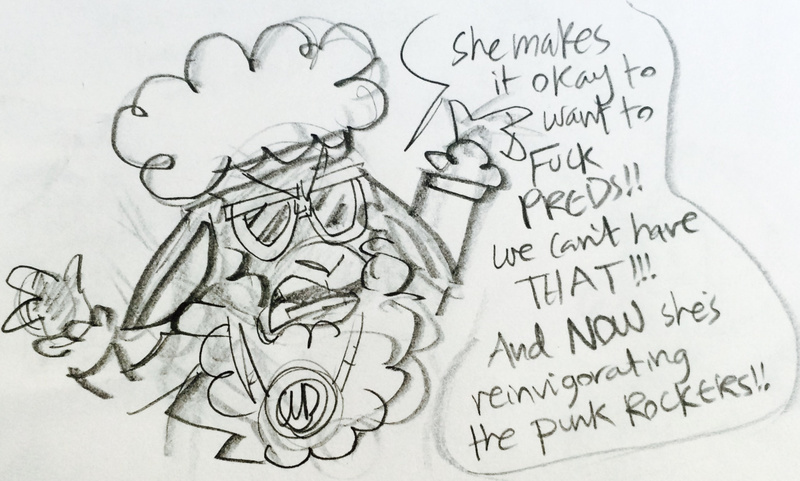 she makes
it okay to
want to
FUCK
PREDS!!
we can't have
THAT!!!
And NOW she's
reinvigorating
the punk ROCKERS!!